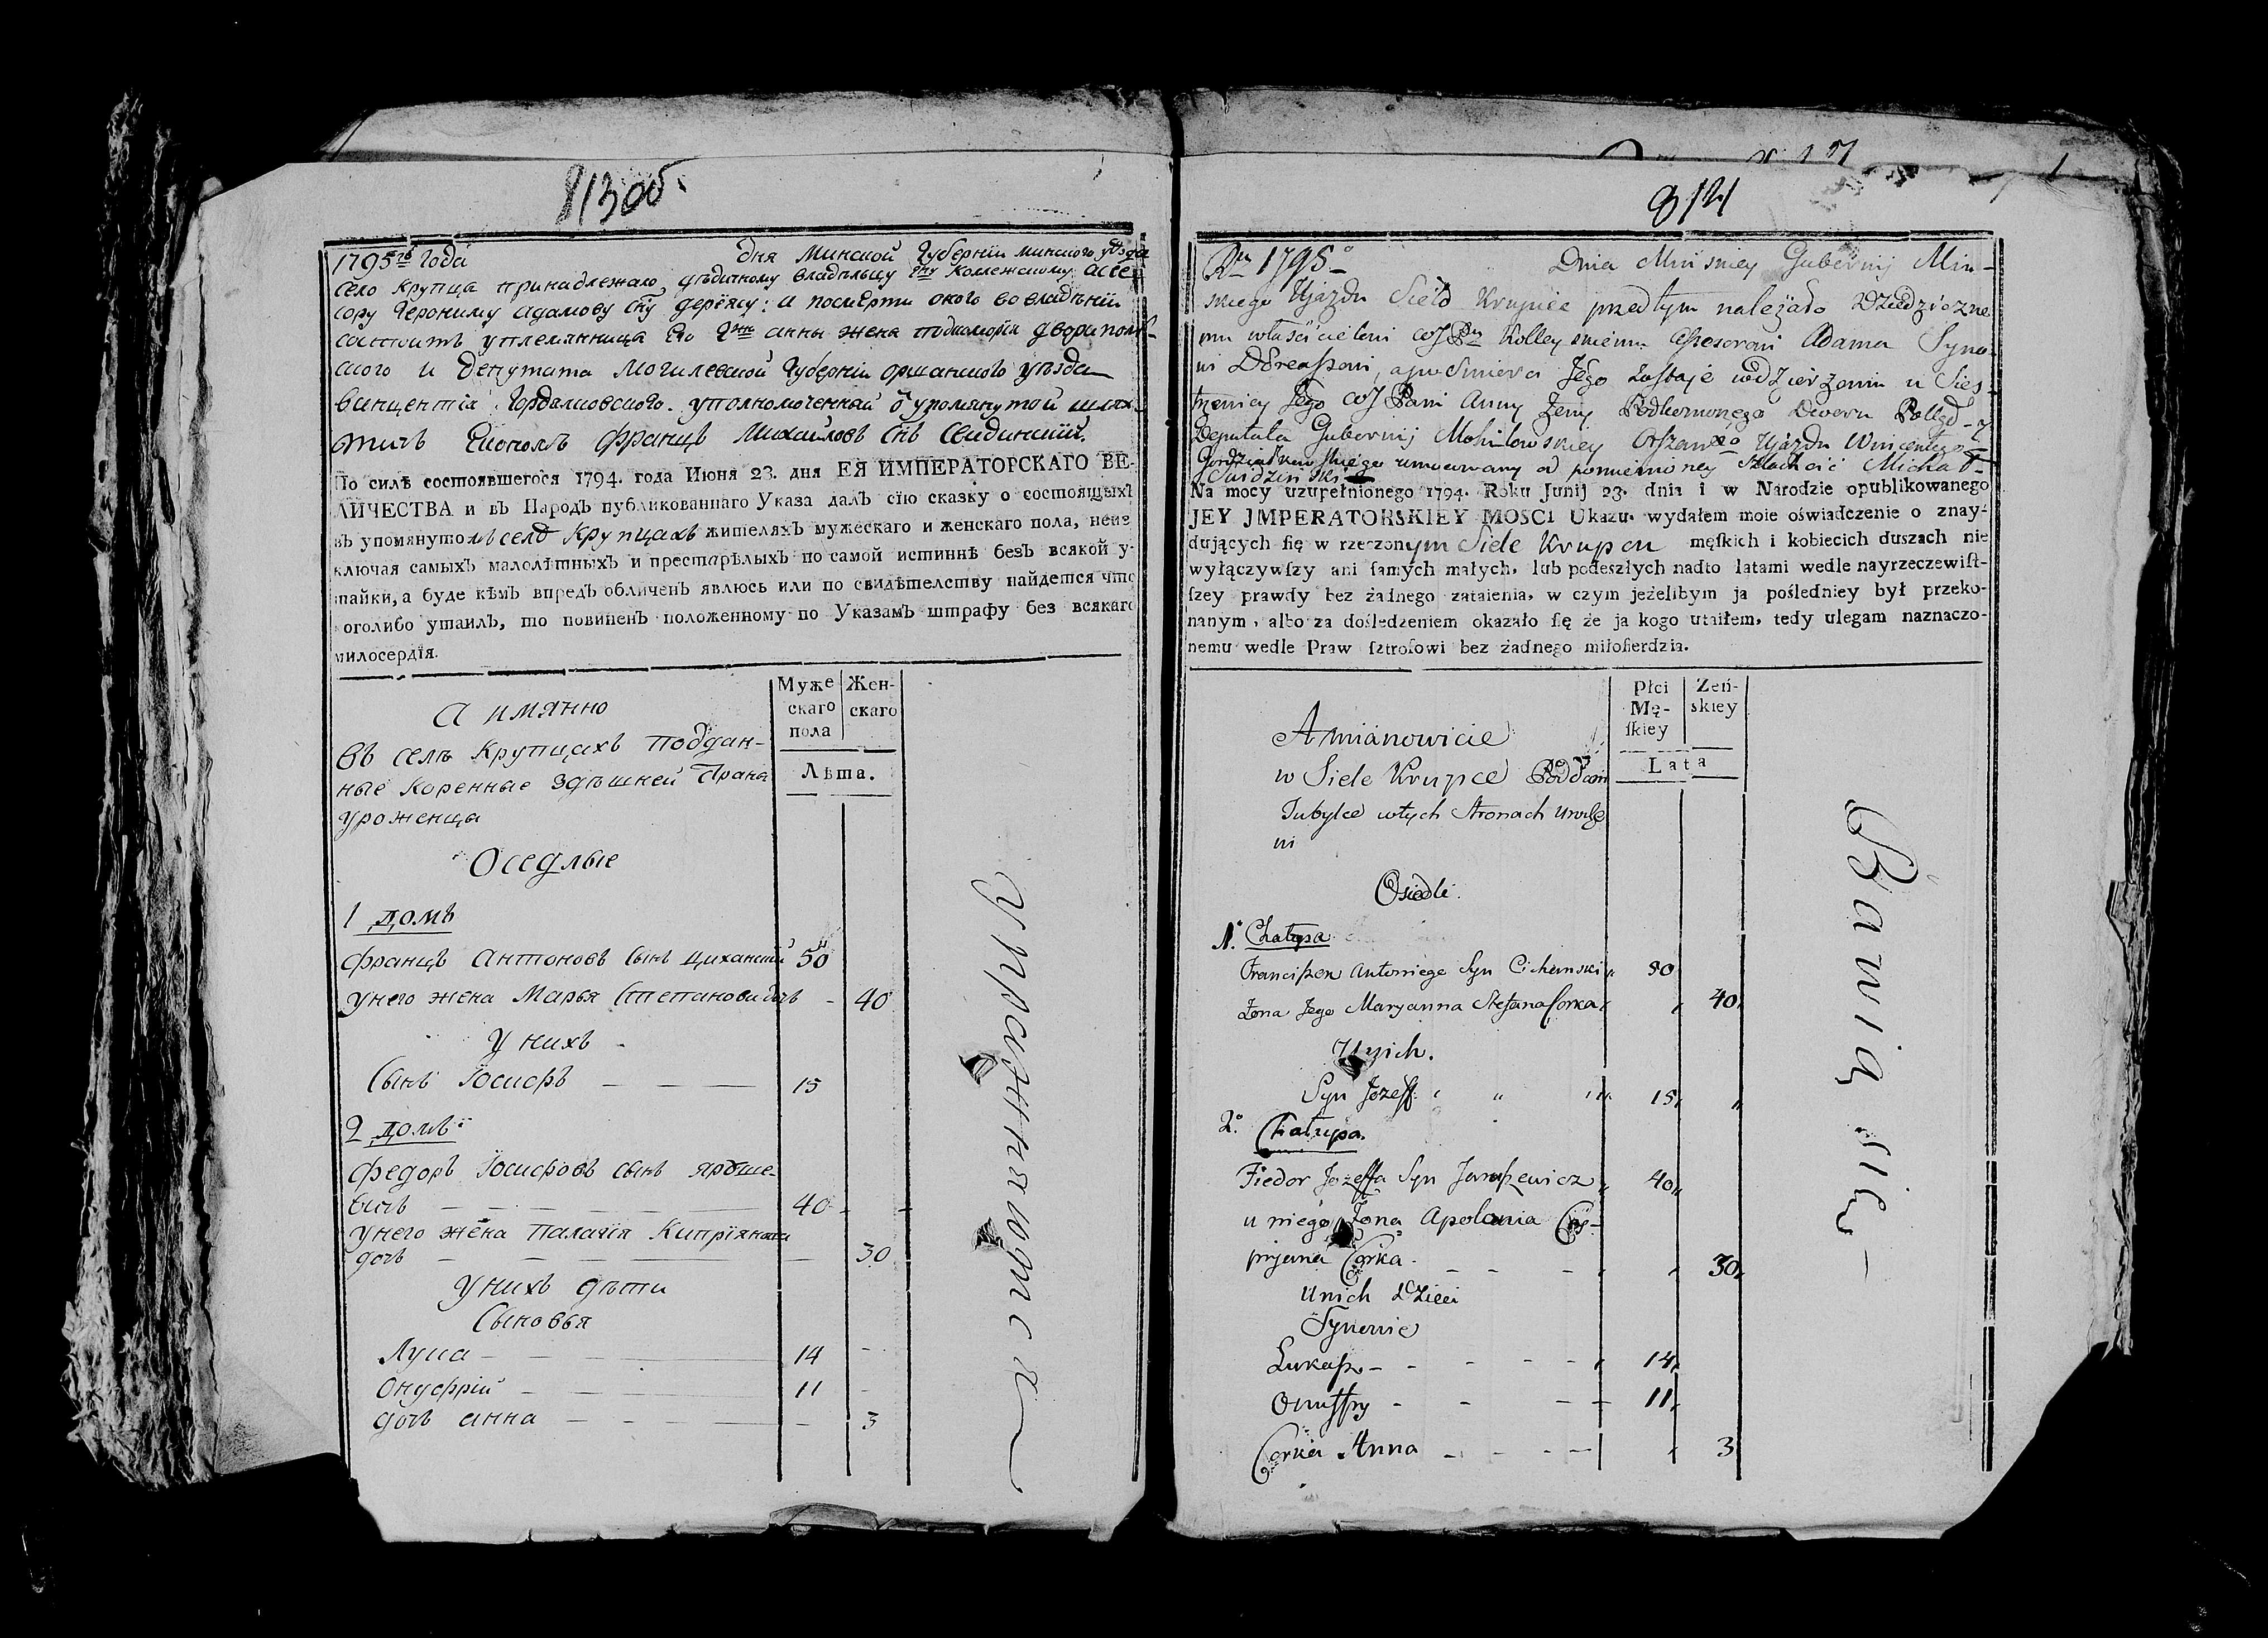 813 об.
1795го года дня Минской Губернїи минского уѣзда
село крупца принадлежало дѣдичному владѣльцу гну коллежскому ассе
сору Іерониму адамову сну : а посмерти оного во владѣнїи
состоитъ уплемянница его анны жена подкоморїя двора поль-
ского и депутата Могилевской Губернїи оршанского уѣзда
винцентїя уполномоченный ѿ упомянутой шлях-
тичъ францъ Михайловъ снъ Свидинскій.
По силѣ состоявшегося 1794. года Июня 23. дня ЕЯ ИМПЕРАТОРСКАГО ВЕ-
ЛИЧЕСТВА и въ Народъ публикованнаго Указа далъ сїю сказку о состоящыхъ
въ упомянутомъ селѣ Крупцахъ жителяхъ мужескаго и женскаго пола, неиз
ключая самыхъ малолѣтныхъ и престарѣлыхъ по самой истиннѣ безъ всякой у-
тайки, а буде кѣмъ впредъ обличенъ явлюсь или по свидѣтелству найдется что
коголибо утаилъ, то повиненъ положенному по Указамъ штрафу без всякаго
милосердїя.
Муже
скаго
пола
Жен-
скаго
Лѣта.
А имянно
въ селѣ Крупцахъ поддан-
ные коренные здѣшней
уроженца
Оседлые
1 домъ
францъ Антоновъ сынъ циханский 50
унего жена Марья Степанова дочь - 40
У нихъ -
Сынъ Іосифъ — — — 15
2 домъ
федоръ Іосифовъ сынъ яроше-
вичъ — — — — 40 - -
унего жена Палагія Кипріянова
дочь — — — — 30
У нихъ дѣти
Сыновья
Лука — — — 14 -
Онуфрій — — — 11 -
дочь анна — — — - 3
упражняются
814
Rku 1795o Dnia Minskiey Gubernij Min-
skiego Ujazdu Sieło Krupice przedtym należało Dziedziczne
mu włascicielowi Kolleyskiemu Assesorowi Adama Syno-
wi , a po Smierci Jego zostaje w dzierżeniu u Sies-
trzenicy Jego Pani Anny żeny Podkomorzego Dworu
Deputata Gubernij Mohilowskiey Orszansko Ujazdu Wincentego
umocowany od pomienioney Szlachcic Michał
Swidzinski
Na mocy uzupełnionego 1794. Roku Junij 23. dnia i w Narodzie opublikowanego
JEY JMPERATORSKIEY MOSCI Ukazu, wydałem moie oświadczenie o znay-
dujących się w rzeczonym Siele Krupcu męſkich i kobiecich duszach nie
wyłączywſzy ani ſamych małych, lub podeszłych nadto latami wedle nayrzeczewiſt-
ſzey prawdy bez żadnego zataienia, w czym jeżelibym ja poſledniey był przeko-
nanym, albo za doſledzeniem okazało ſię że ja kogo utaiłem, tedy ulegam naznaczo-
nemu wedle Praw ſztrofowi bez żadnego miłoſierdzia.
Płci
Mę-
ſkiey
Zeń-
skiey
Lata
A mianowicie
w Siele Krupce Poddani
Tubylce wtych Stronach urodze
ni
Osiedli.
1o. Chałupa
Franciszek Antoniego Syn Cichanski 50
Żona Jego Maryanna Stefana Corka 40
U nich.
Syn Jozeff 15
2o. Chałupa.
Fiedor Jozeffa Syn Jaroszewicz 40
u niego Żona Apolonia Cy-
pryana Corka - - - 30
U nich Dzieci
Synowie
Łukasz - - - - - 14
Onuffry - - - - 11
Corka Anna - - - - 3
Bawią się —